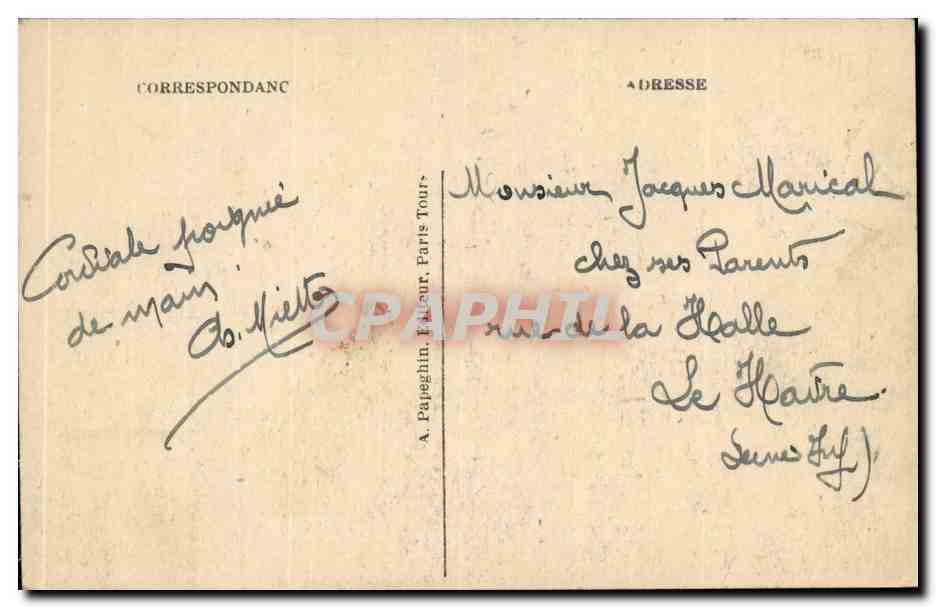 CORRESPONDANC
ADRESSE
Cordiale poignié
de main
A. Papeghin, Editeur, Paris Tours
Monsieur Jacques Marical
chez ses Parents
rue de la Halle
Le Havre.
Seine Inf)
CPAPHIL